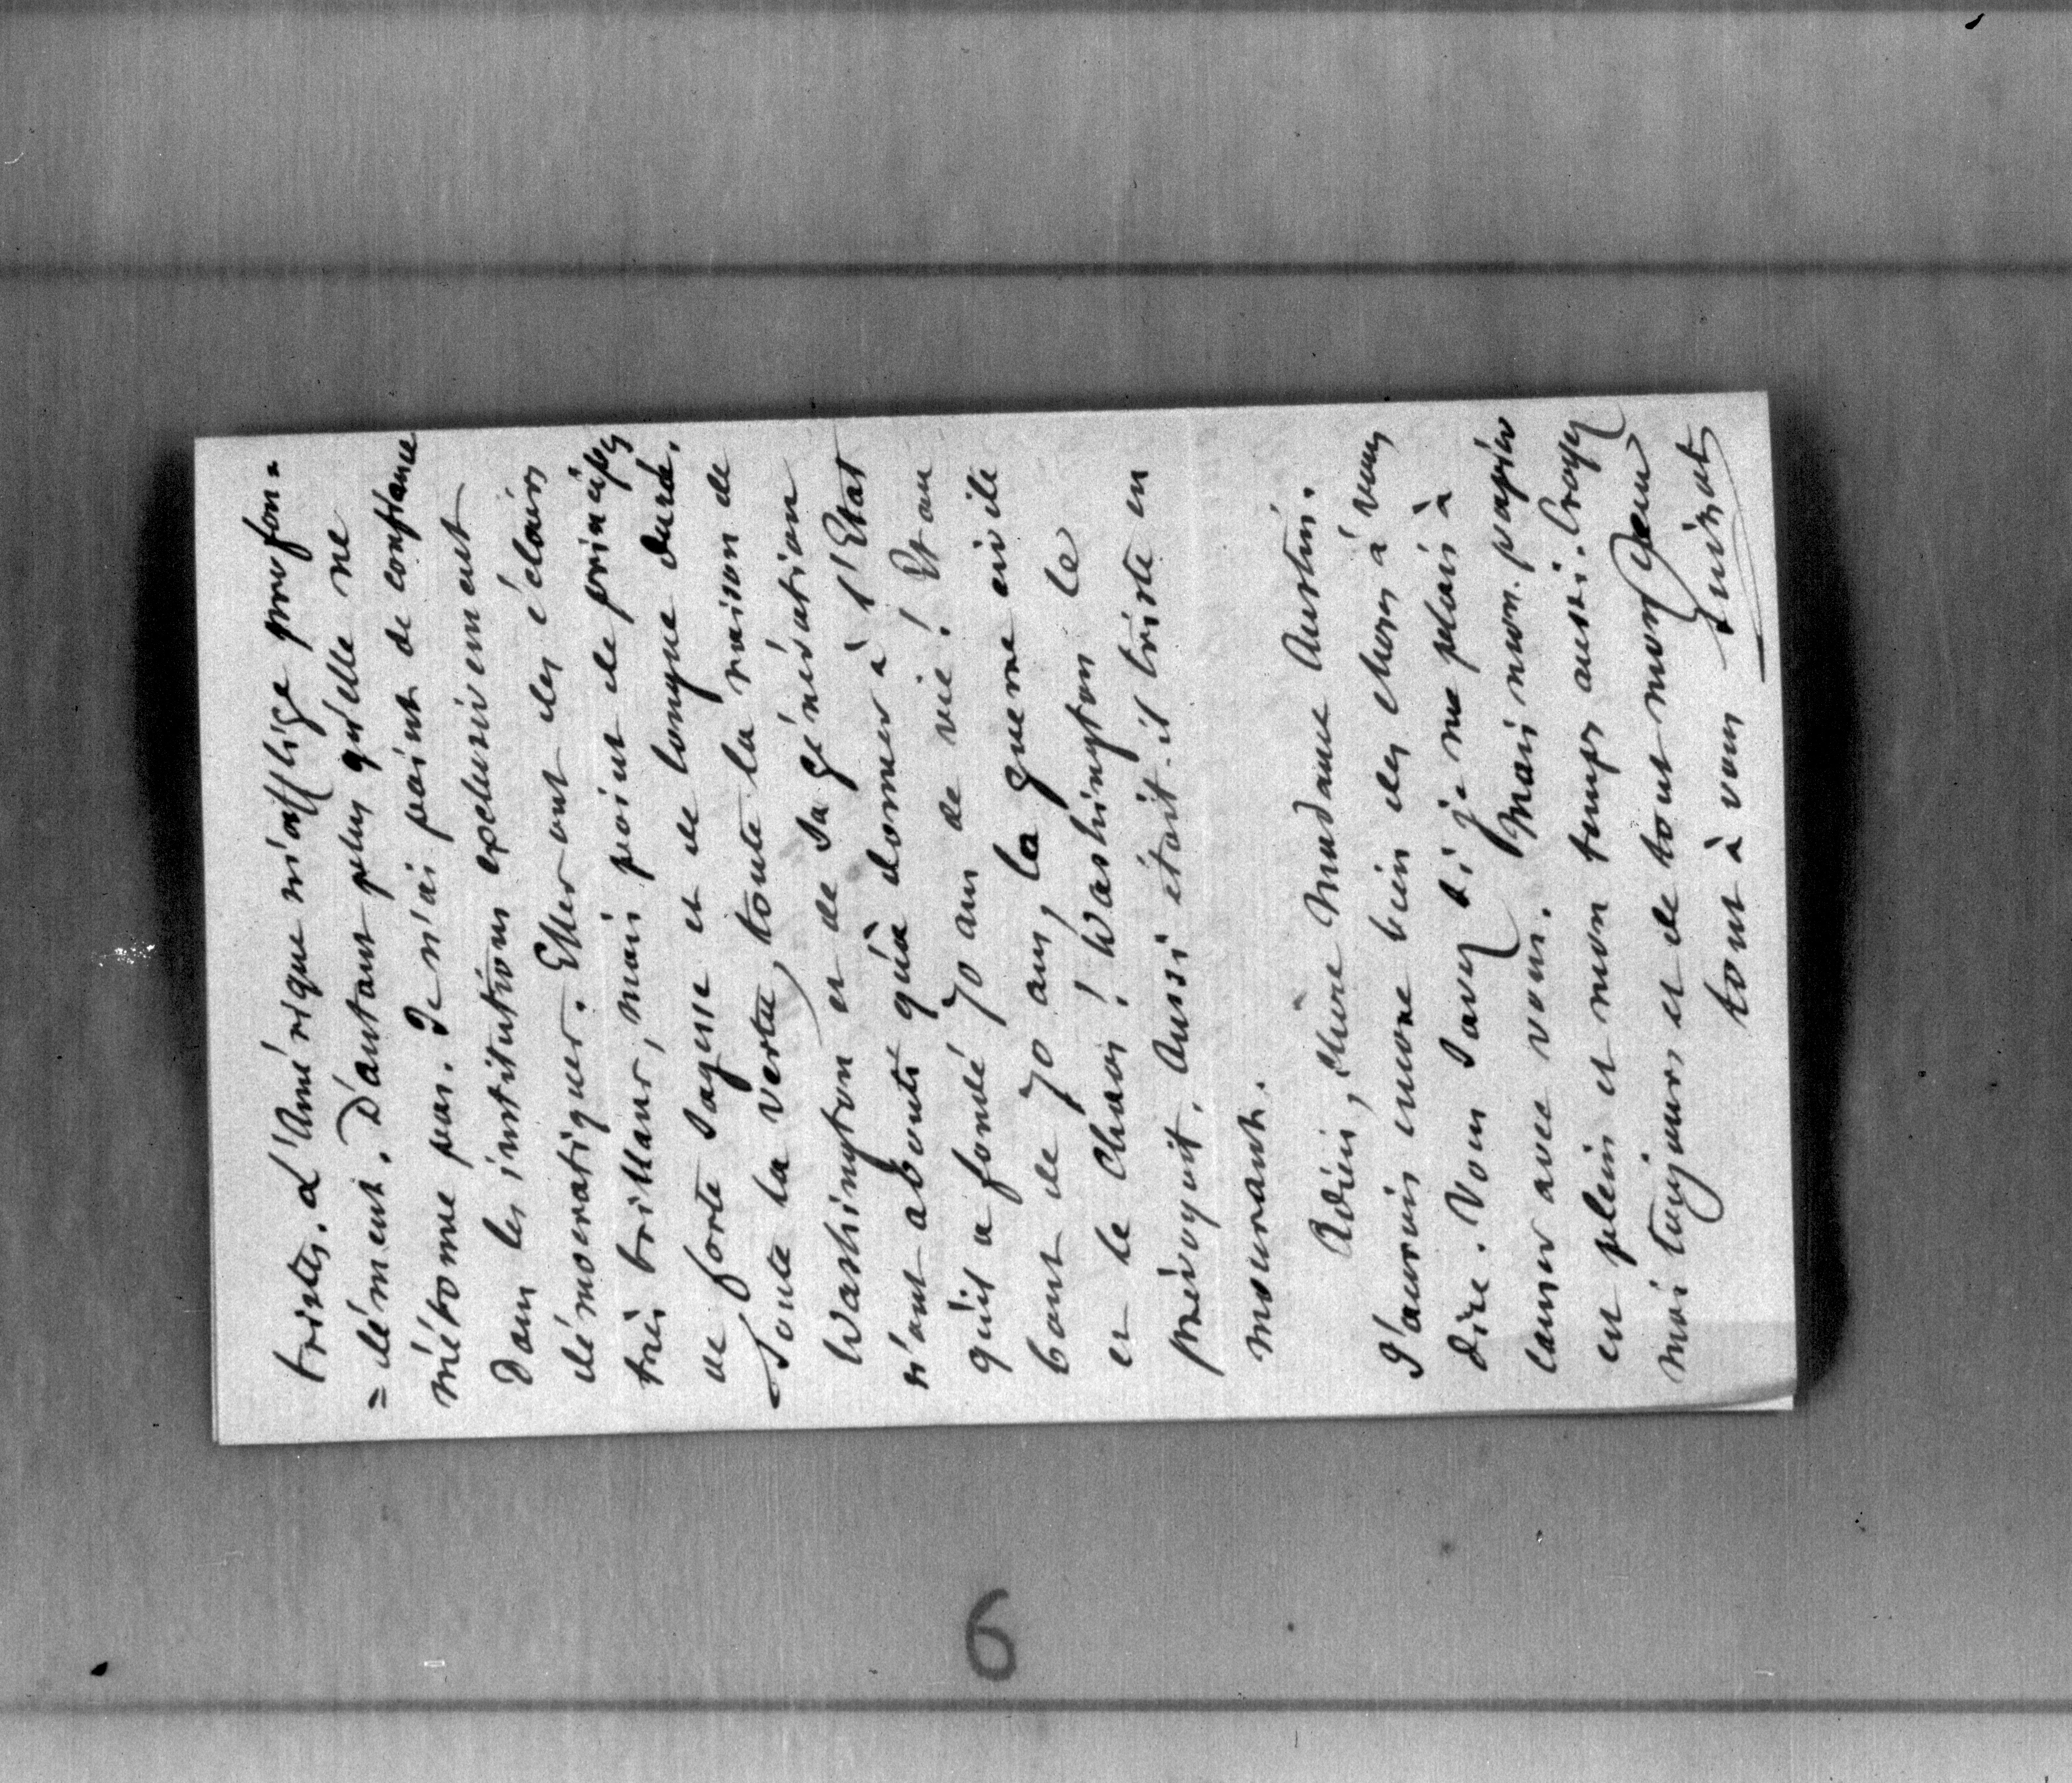 tristes. L'Amérique m'afflige profon=
=dément. D'autant plus qu'elle ne
m'étonne pas. Je n'ai point de confiance
dans les institutions exclusivement
démocratiques. Elles ont des éclairs
très brillans, mais point de principes
de forte sagesse et de longue durée.
Toute la vertu, toute la raison de
Washington et de sa génération
n'ont abouti qu'à donner à l'Etat
qu'il a fondé 70 ans de vie! Et au
bout de 70 ans, la guerre civile
et le chaos! Washington le
prévoyait. Aussi était-il triste en
mourant.
Adieu, chère Madame Austin.
J'aurois encore bien des choses à vous
dire. Vous savez si je me plais à
causer avec vous. Mais mon papier
est plein et mon temps aussi. Croyez
moi toujours et de tout mon coeur
tout à vous Guizot
6